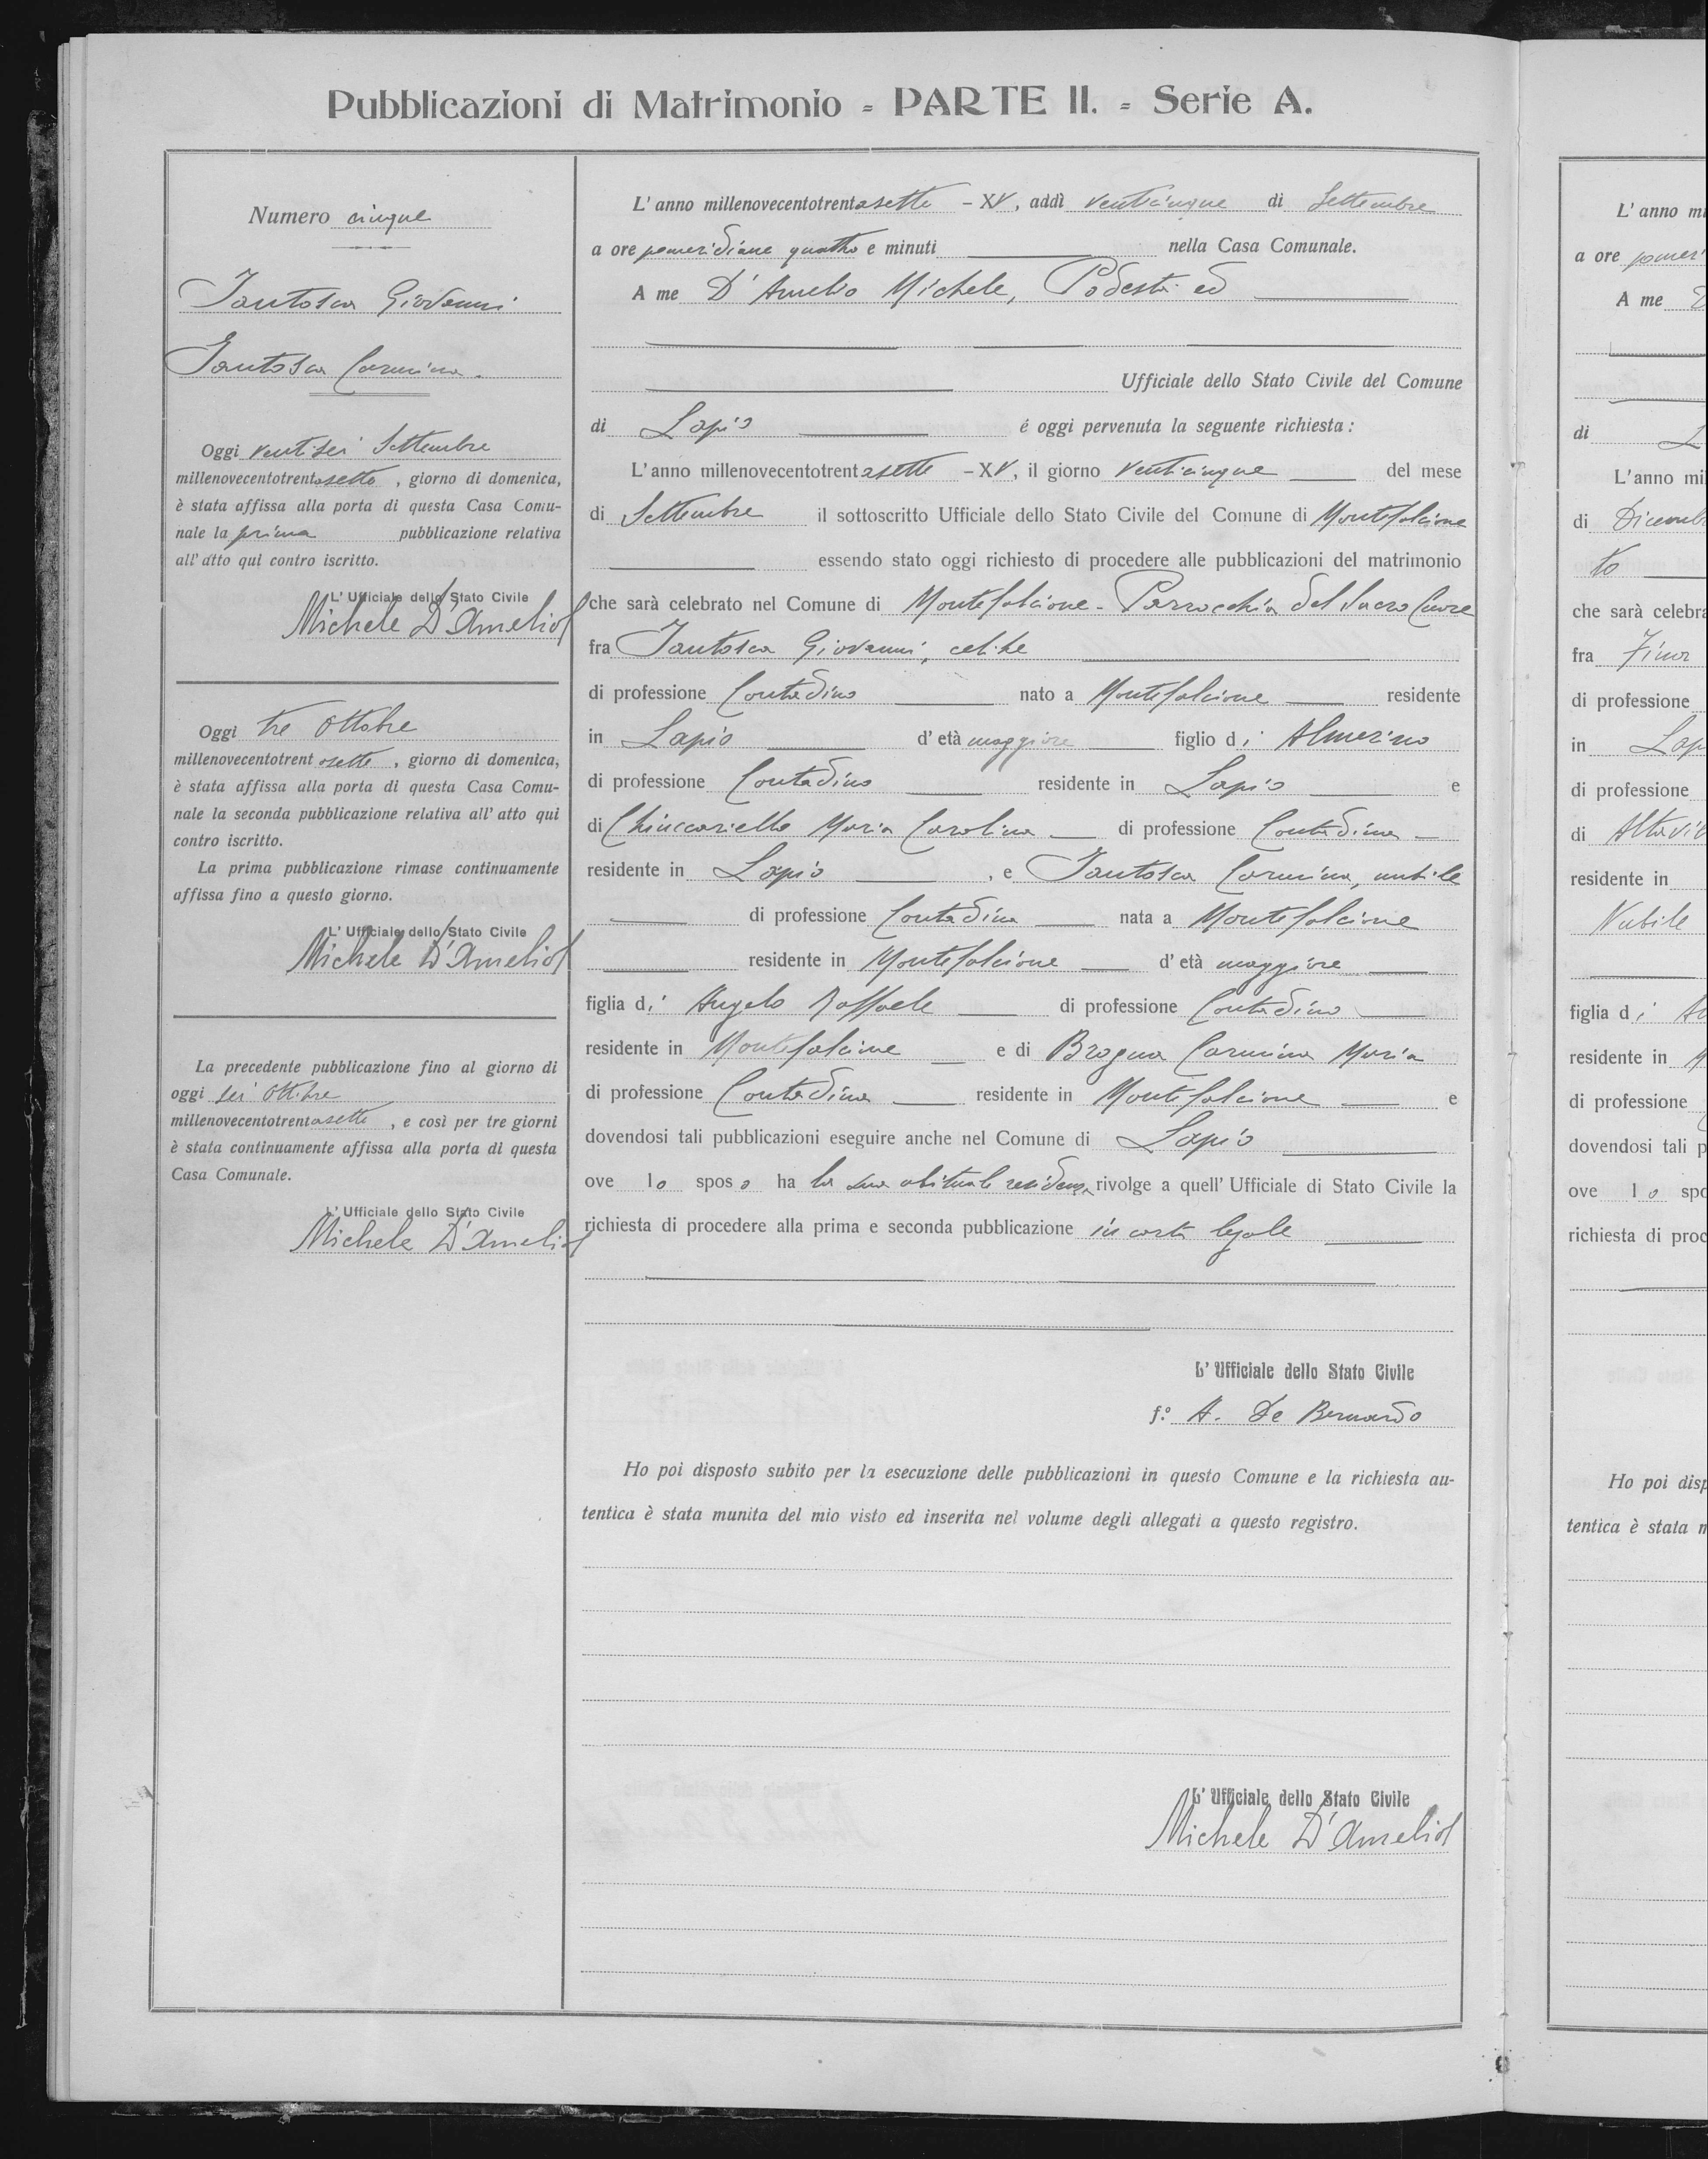 Pubblicazioni di Matrimonio = PARTE II. = Serie A.
Numero cinque
Iantosca Giovanni
Iantosca Carmina.
Oggi ventisei Settembre
millenovecentotrentasette, giorno di domenica,
è stata affissa alla porta di questa Casa Comu-
nale la prima pubblicazione relativa
all'atto qui contro iscritto.
L'Ufficiale dello Stato Civile
Michele D'Amelio
Oggi tre Ottobre
millenovecentotrentasette, giorno di domenica,
è stata affissa alla porta di questa Casa Comu-
nale la seconda pubblicazione relativa all'atto qui
contro iscritto.
La prima pubblicazione rimase continuamente
affissa fino a questo giorno.
L'Ufficiale dello Stato Civile
Michele D'Amelio
La precedente pubblicazione fino al giorno di
oggi sei Ottobre
millenovecentotrentasette, e così per tre giorni
è stata continuamente affissa alla porta di questa
Casa Comunale.
L'Ufficiale dello Stato Civile
Michele D'Amelio
L'anno millenovecentotrentasette - XV, addì venticinque di Settembre
a ore pomeridiane quattro e minuti nella Casa Comunale.
A me D'Amelio Michele, Podestà ed
Ufficiale dello Stato Civile del Comune
di Lapio é oggi pervenuta la seguente richiesta:
L'anno millenovecentotrentasette - XV, il giorno venticinque del mese
di Settembre il sottoscritto Ufficiale dello Stato Civile del Comune di Montefalcione
essendo stato oggi richiesto di procedere alle pubblicazioni del matrimonio
che sarà celebrato nel Comune di Montefalcione - Parrocchia del Sacro Cuore
fra Iantosca Giovanni, celibe
di professione Contadino nato a Montefalcione residente
in Lapio d'età maggiore figlio di Almerino
di professione Contadino residente in Lapio e
di Chiuccariello Maria Carolina di professione Contadina
residente in Lapio, e Iantosca Carmina, nubile
di professione Contadina nata a Montefalcione
residente in Montefalcione d'età maggiore
figlia di Angelo Raffaele di professione Contadino
residente in Montefalcione e di Brogna Carmina Maria
di professione Contadina residente in Montefalcione e
dovendosi tali pubblicazioni eseguire anche nel Comune di Lapio
ove lo sposo ha la sua abituale residenza rivolge a quell'Ufficiale di Stato Civile la
richiesta di procedere alla prima e seconda pubblicazione in carta legale
L'Ufficiale dello Stato Civile
f.º A. De Bernardo
Ho poi disposto subito per la esecuzione delle pubblicazioni in questo Comune e la richiesta au-
tentica è stata munita del mio visto ed inserita nel volume degli allegati a questo registro.
L'Ufficiale dello Stato Civile
Michele D'Amelio
L'anno mi
a ore pomer
A me
di
L'anno mi
di Dicemb
to
che sarà celebra
fra
di professione
in Lap
di professione
di Altavil
residente in
Nubile
figlia di
residente in
di professione
dovendosi tali p
ove lo spo
richiesta di proc
Ho poi disp
tentica è stata m